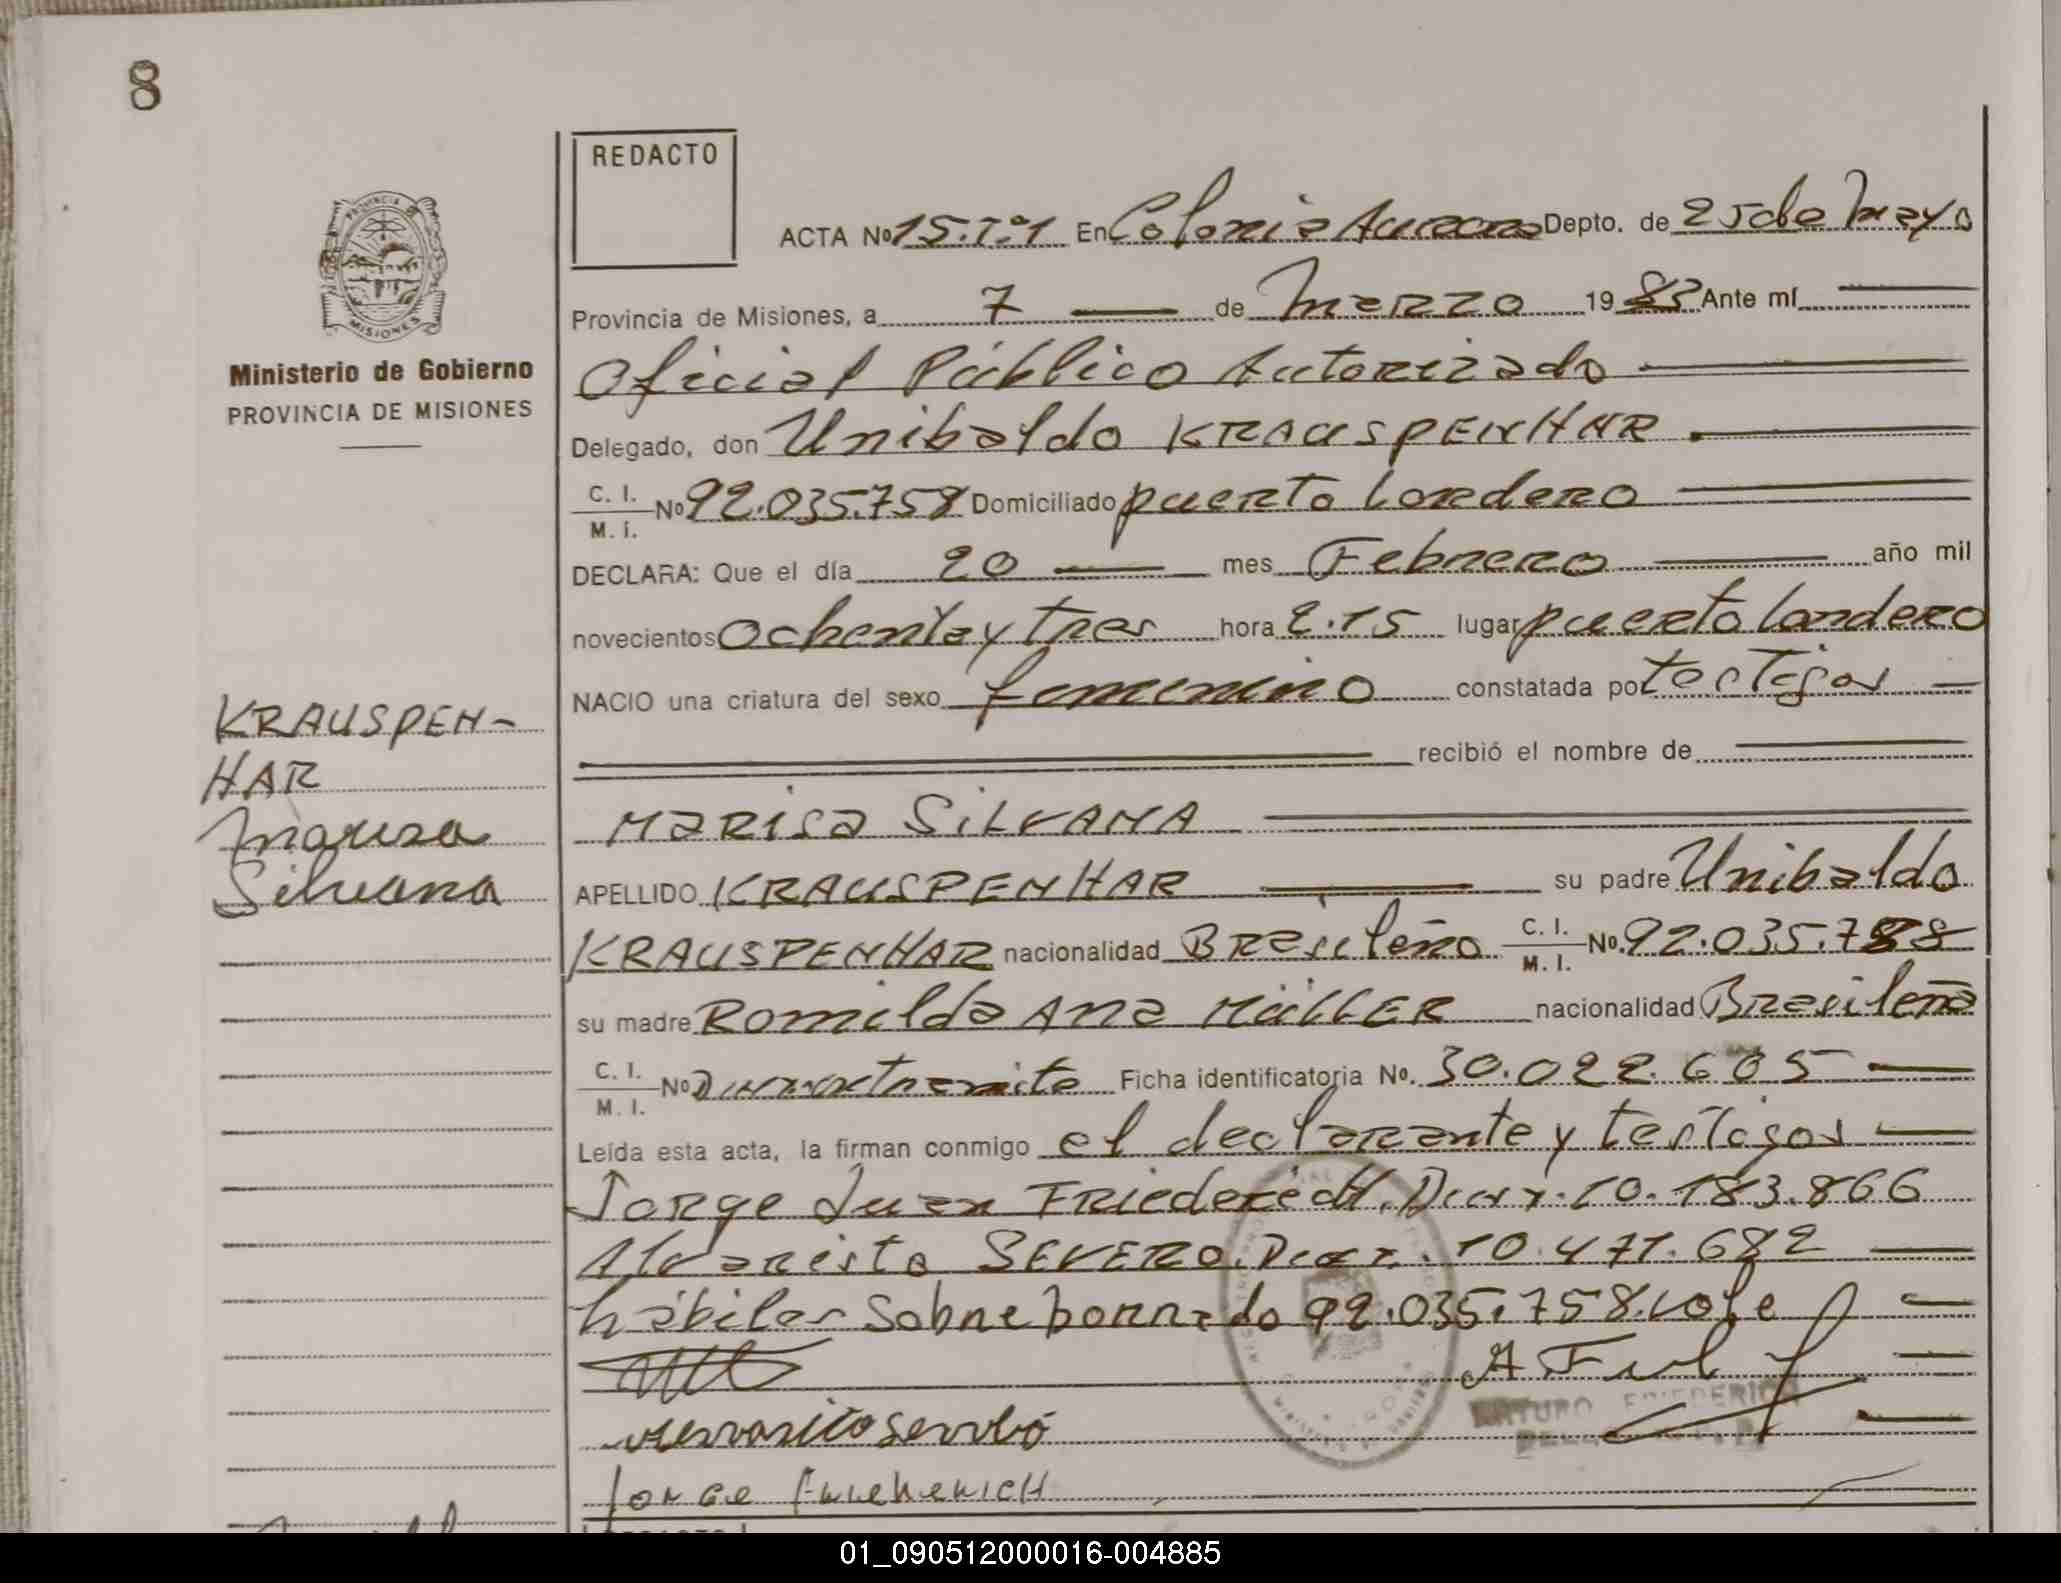 8
REDACTO
ACTA Nº 15.Tº1 En Colonia Aurora Depto. de 25 de Mayo
PROVINCIA DE
MISIONES
Provincia de Misiones, a 7 de Marzo 1983 Ante mí
Ministerio de Gobierno
PROVINCIA DE MISIONES
Oficial Público Autorizado
Delegado, don Unibaldo KRAUSPENHAR
C. I.
M. I. Nº 92.035.758 Domiciliado puerto Londero
DECLARA: Que el día 20 mes Febrero año mil
novecientos ochenta y tres hora 2.15 lugar puerto Londero
NACIO una criatura del sexo femenino constatada por testigos
KRAUSPEN-
HAR
Marisa
Silvana
recibió el nombre de
MARISA SILVANA
APELLIDO KRAUSPENHAR su padre Unibaldo
KRAUSPENHAR nacionalidad Brasileño C. I. M. I. No. 92.035.758
su madre Romilda Ana MÜLLER nacionalidad Brasileña
C. I.
M. I. Nº en tramite Ficha identificatoria No. 30.022.605
Leída esta acta, la firman conmigo el declarante y testigos
Jorge Juan FRIEDERICH. 10.183.866
SEVERO. 10.471.682
hábiles Sobre borrado 92.035.758. vale
ARTURO FRIEDERICH
Jorge
01_090512000016-004885